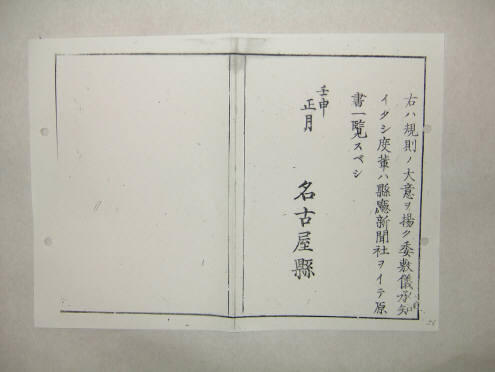 右ハ規則ノ大意ヲ揚ク委敷儀承知
イタシ度輩ハ縣廳新聞社ヲイテ原
書一覧スベシ
壬申
正月
名古屋縣